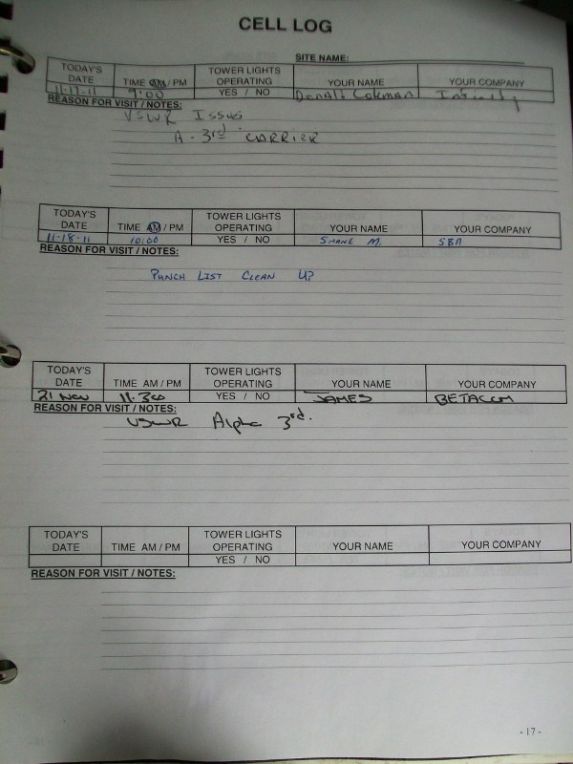 CELL LOG
SITE NAME:
TODAY'S DATE TIME AM / PM TOWER LIGHTS OPERATING YOUR NAME YOUR COMPANY
9:00 YES / NO Donall Coleman
REASON FOR VISIT / NOTES:
VSWR Issue
A - 3rd CARRIER
TODAY'S DATE TIME AM / PM TOWER LIGHTS OPERATING YOUR NAME YOUR COMPANY
11-18-11 10:00 YES / NO SHANE M. SBA
REASON FOR VISIT / NOTES:
PUNCH LIST CLEAN UP
TODAY'S DATE TIME AM / PM TOWER LIGHTS OPERATING YOUR NAME YOUR COMPANY
21 Nov 11.300 YES / NO JAMES BETACOM
REASON FOR VISIT / NOTES:
VSWR Alpha 3rd.
TODAY'S DATE TIME AM / PM TOWER LIGHTS OPERATING YOUR NAME YOUR COMPANY
YES / NO
REASON FOR VISIT / NOTES:
- 17 -